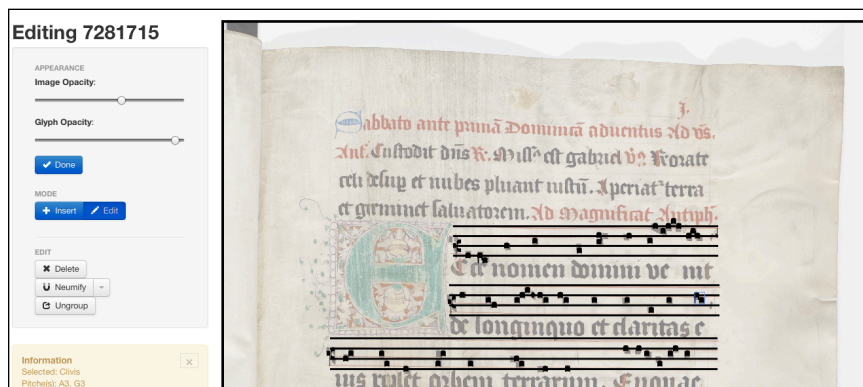 Editing 7281715
APPEARANCE
Image Opacity:
Glyph Opacity:
Done
MODE
Insert
Edit
EDIT
Delete
Neumify
Ungroup
Information
Selected: Clivis
Pitche(s): A3, G3
J.
Sabbato ante primā Dominicā aduentus Ad vs̄.
Ant. Custodit dn̄s R. Missꝰ est gabriel v̄. Rorate
celi desup et nubes pluant iustū. Aperiat terra
et germinet saluatorem. Ad Magnificat Antiph.
Ecce nomen domini ve nit
de longinquo et claritas e
ius replet orbem terrarum. Euouae